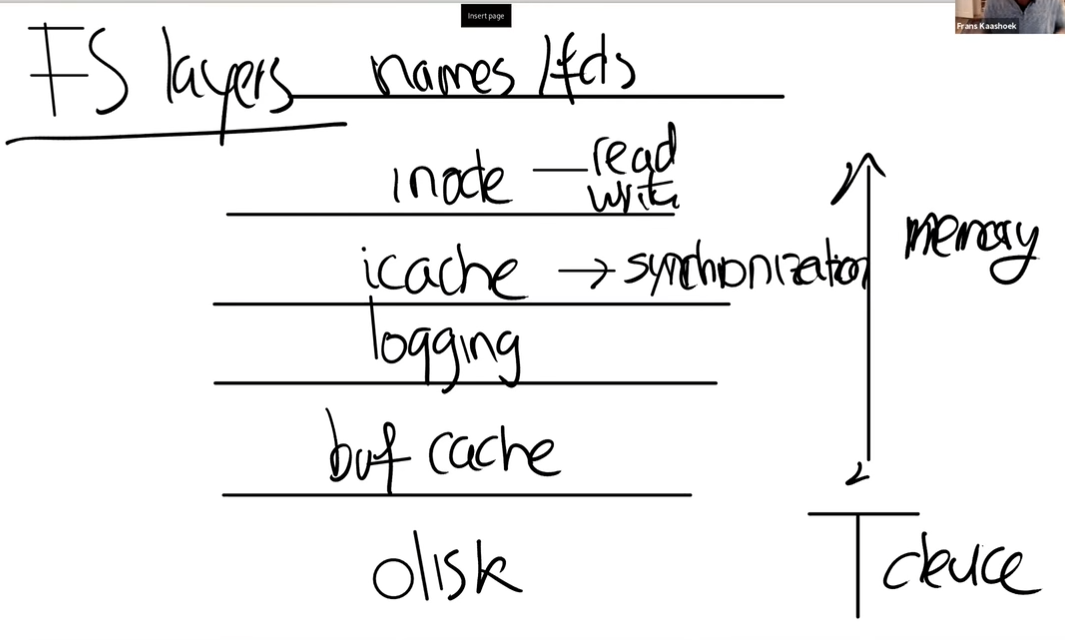 Insert page
Frans Kaashoek
FS layers
names/fds
inode — read
write
icache → synchronization
memory
logging
buf cache
disk
device